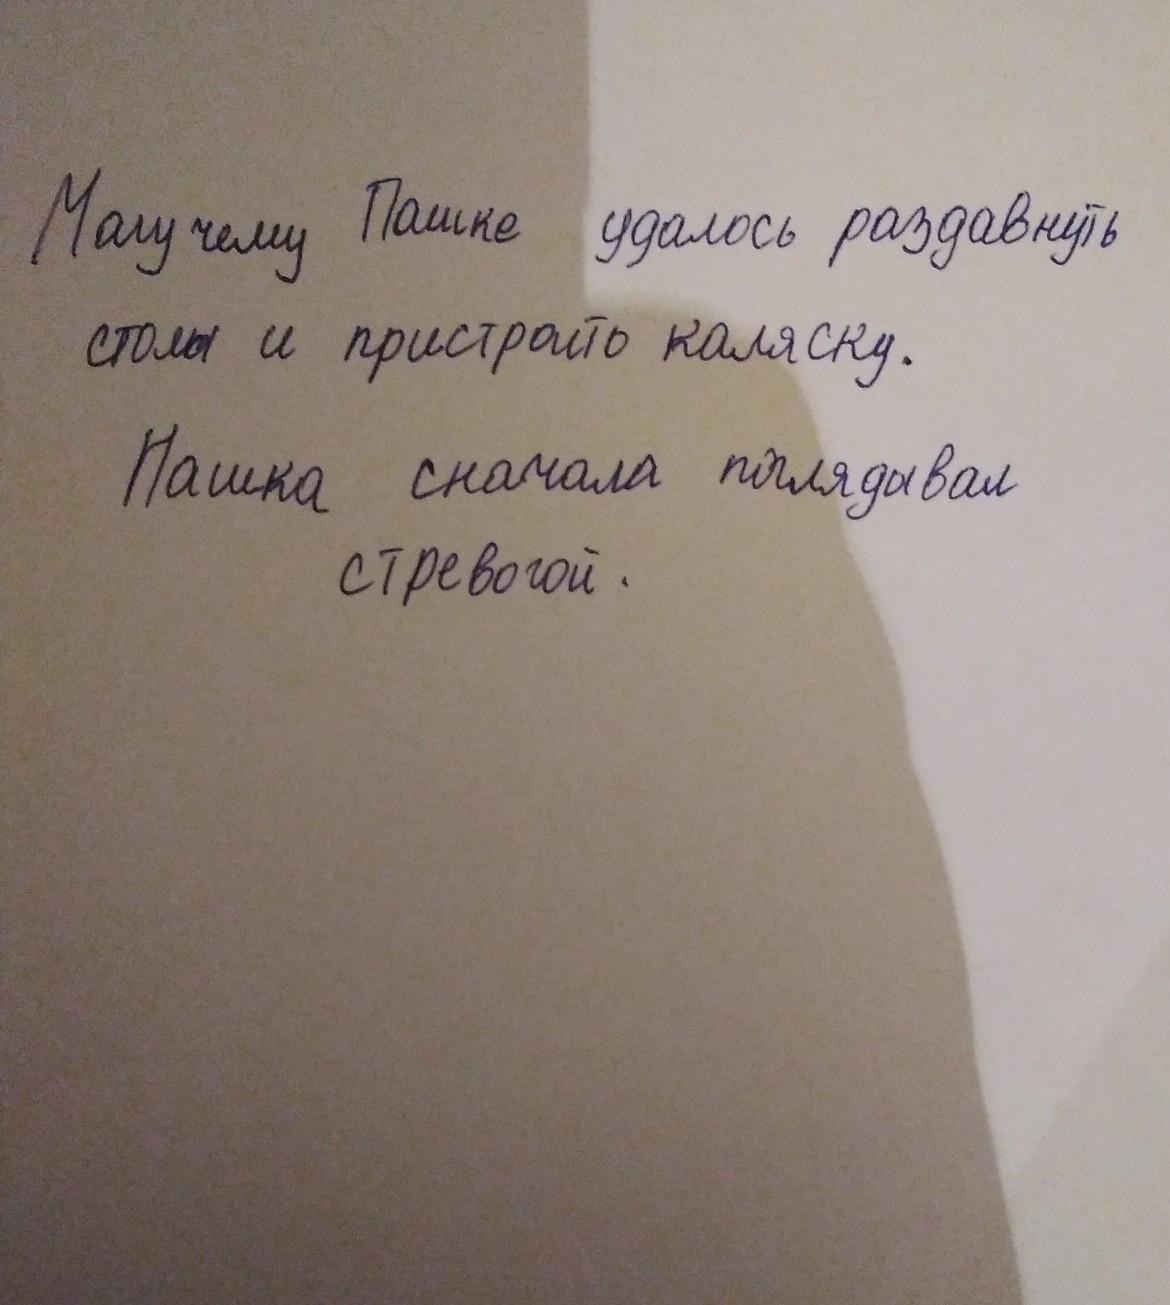 Магучему Пашке удалось раздавнуть
столы и пристроить каляску.
Пашка сначала поглядывал
стревогой.